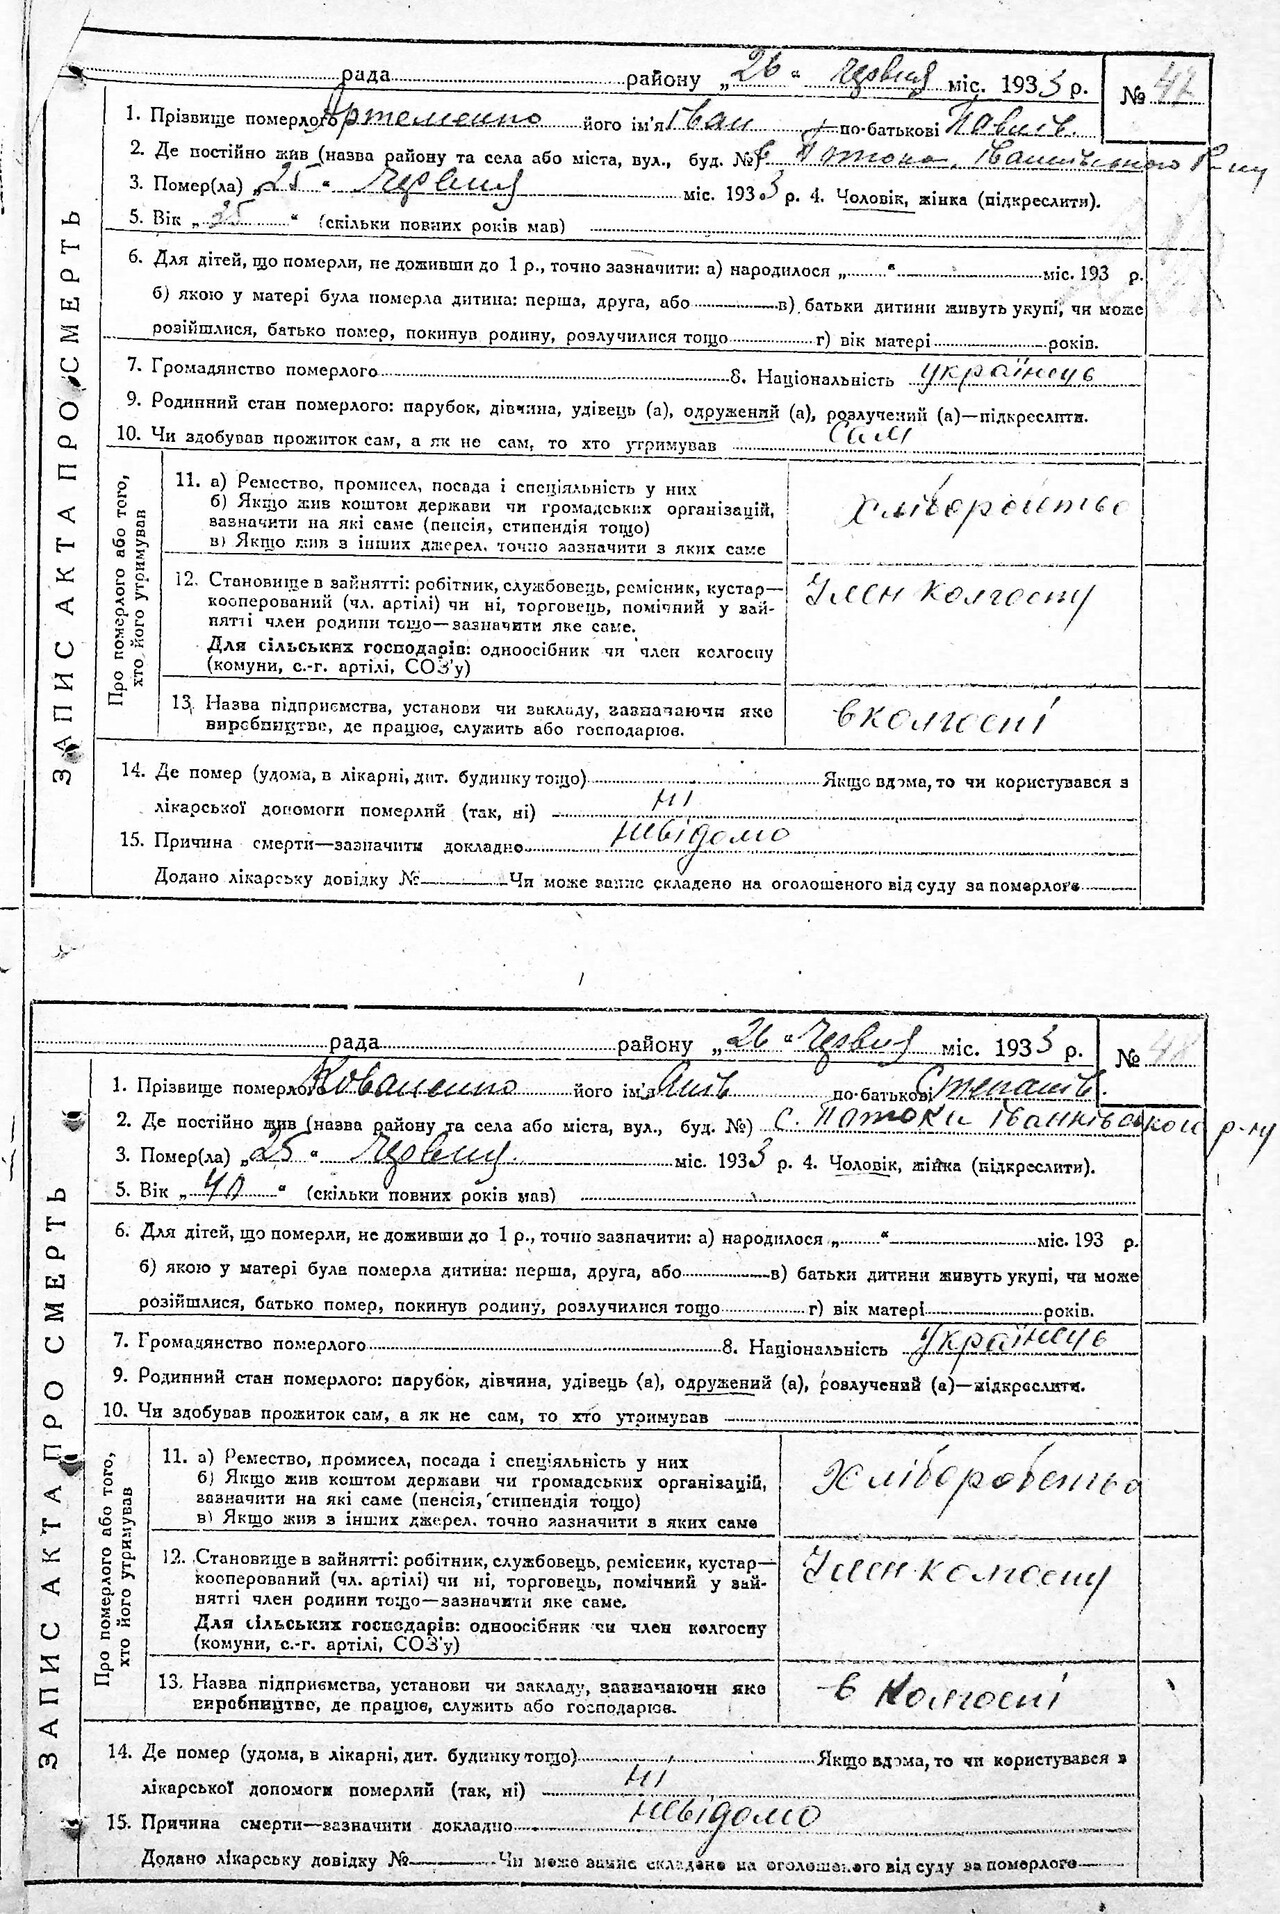 рада району „26“ червня міс. 1933 р. № 47
1. Прізвище померлого Артеменко його ім'я Іван по-батькові Павлів.
2. Де постійно жив (назва району та села або міста, вул., буд. №) с. Потоки Іванківського р-ну
3. Помер(ла) „25“ червня міс. 1933 р. 4. Чоловік, жінка (підкреслити).
5. Вік „35“ (скільки повних років мав)
6. Для дітей, що померли, не доживши до 1 р., точно зазначити: а) народилося „ “ міс. 193 р.
б) якою у матері була померла дитина: перша, друга, або в) батьки дитини живуть укупі, чи може
розійшлися, батько помер, покинув родину, розлучилися тощо г) вік матері років.
7. Громадянство померлого 8. Національність українець
9. Родинний стан померлого: парубок, дівчина, удівець (а), одружений (а), розлучений (а)—підкреслити.
10. Чи здобував прожиток сам, а як не сам, то хто утримував сам
ЗАПИС АКТА ПРО СМЕРТЬ
Про померлого або того, хто його утримував
11. а) Ремество, промисел, посада і спеціяльність у них
б) Якщо жив коштом держави чи громадських організацій,
зазначити на які саме (пенсія, стипендія тощо)
в) Якщо жив з інших джерел, точно зазначити з яких саме
хліборобство
12. Становище в зайнятті: робітник, службовець, ремісник, кустар—
кооперований (чл. артілі) чи ні, торговець, помічний у зай-
нятті член родини тощо—зазначити яке саме.
Для сільських господарів: одноосібник чи член колгоспу
(комуни, с.-г. артілі, СОЗ'у)
Член колгоспу
13. Назва підприємства, установи чи закладу, зазначаючи яке
виробництво, де працює, служить або господарює.
в колгоспі
14. Де помер (удома, в лікарні, дит. будинку тощо) Якщо вдома, то чи користувався з
лікарської допомоги померлий (так, ні) ні
15. Причина смерти—зазначити докладно невідомо
Додано лікарську довідку № Чи може запис складено на оголошеного від суду за померлого
рада району „26“ червня міс. 1933 р. № 48
1. Прізвище померлого Коваленко його ім'я Яків по-батькові Степанів.
2. Де постійно жив (назва району та села або міста, вул., буд. №) с. Потоки Іванківського р-ну
3. Помер(ла) „25“ червня міс. 1933 р. 4. Чоловік, жінка (підкреслити).
5. Вік „40“ (скільки повних років мав)
6. Для дітей, що померли, не доживши до 1 р., точно зазначити: а) народилося „ “ міс. 193 р.
б) якою у матері була померла дитина: перша, друга, або в) батьки дитини живуть укупі, чи може
розійшлися, батько помер, покинув родину, розлучилися тощо г) вік матері років.
7. Громадянство померлого 8. Національність українець
9. Родинний стан померлого: парубок, дівчина, удівець (а), одружений (а), розлучений (а)—підкреслити.
10. Чи здобував прожиток сам, а як не сам, то хто утримував
ЗАПИС АКТА ПРО СМЕРТЬ
Про померлого або того, хто його утримував
11. а) Ремество, промисел, посада і спеціяльність у них
б) Якщо жив коштом держави чи громадських організацій,
зазначити на які саме (пенсія, стипендія тощо)
в) Якщо жив з інших джерел, точно зазначити в яких саме
Хліборобство
12. Становище в зайнятті: робітник, службовець, ремісник, кустар—
кооперований (чл. артілі) чи ні, торговець, помічний у зай-
нятті член родини тощо—зазначити яке саме.
Для сільських господарів: одноосібник чи член колгоспу
(комуни, с.-г. артілі, СОЗ'у)
Член колгоспу
13. Назва підприємства, установи чи закладу, зазначаючи яке
виробництво, де працює, служить або господарює.
в колгоспі
14. Де помер (удома, в лікарні, дит. будинку тощо) Якщо вдома, то чи користувався з
лікарської допомоги померлий (так, ні) ні
15. Причина смерти—зазначити докладно невідомо
Додано лікарську довідку № Чи може запис складено на оголошеного від суду за померлого